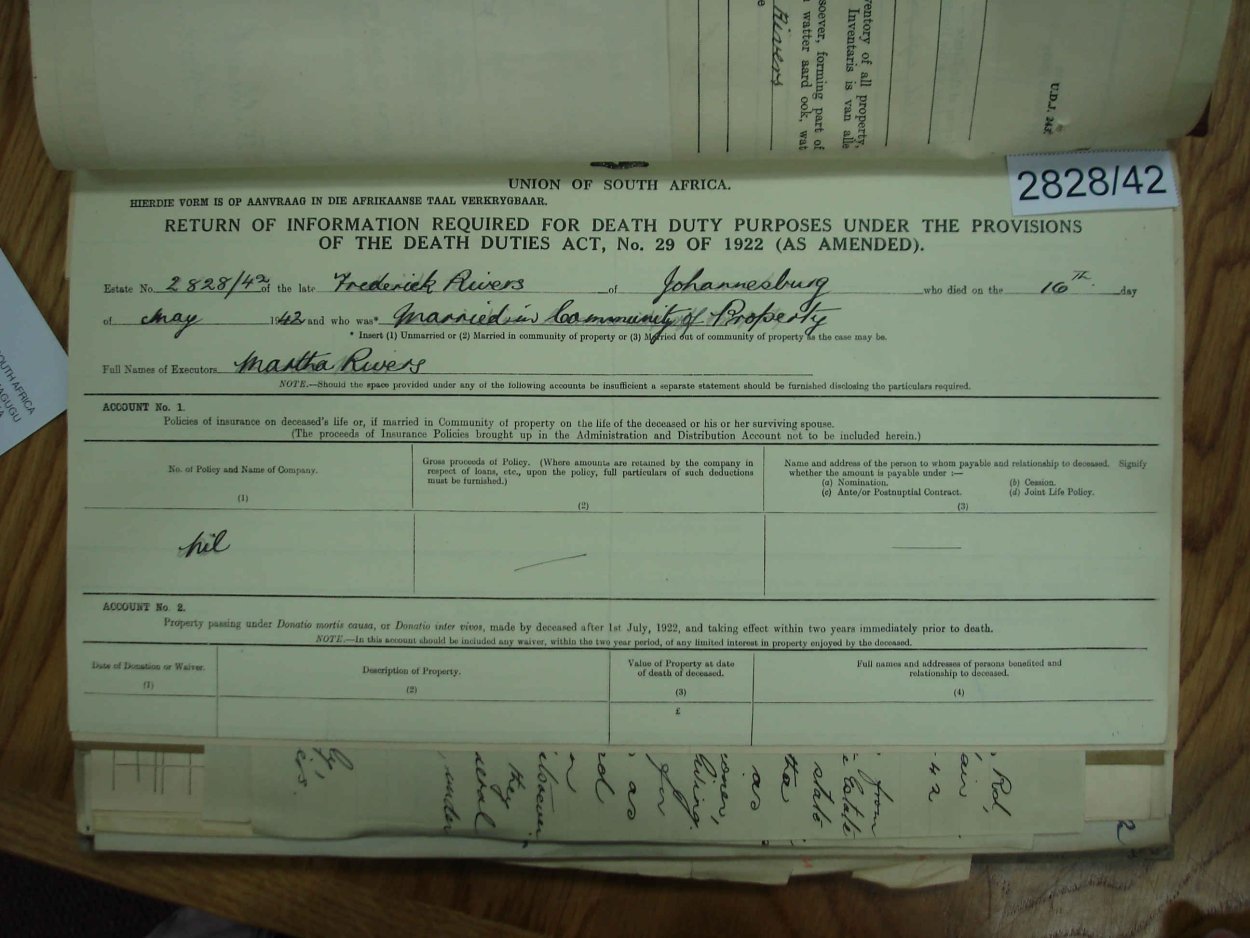 ventory of all property,
Inventaris is van alle
soever, forming part of
watter aard ook, wat
Rivers
U.D.J. 243
2828/42
UNION OF SOUTH AFRICA.
HIERDIE VORM IS OP AANVRAAG IN DIE AFRIKAANSE TAAL VERKRYGBAAR.
RETURN OF INFORMATION REQUIRED FOR DEATH DUTY PURPOSES UNDER THE PROVISIONS
OF THE DEATH DUTIES ACT, No. 29 OF 1922 (AS AMENDED).
Estate No. 2828/42 of the late Frederick Rivers of Johannesburg who died on the 16th day
of May 1942 and who was* Married in Community of Property
* Insert (1) Unmarried or (2) Married in community of property or (3) Married out of community of property as the case may be.
Full Names of Executors Martha Rivers
NOTE.—Should the space provided under any of the following accounts be insufficient a separate statement should be furnished disclosing the particulars required.
ACCOUNT No. 1.
Policies of insurance on deceased's life or, if married in Community of property on the life of the deceased or his or her surviving spouse.
(The proceeds of Insurance Policies brought up in the Administration and Distribution Account not to be included herein.)
No. of Policy and Name of Company.
(1)
Gross proceeds of Policy. (Where amounts are retained by the company in
respect of loans, etc., upon the policy, full particulars of such deductions
must be furnished.)
(2)
Name and address of the person to whom payable and relationship to deceased. Signify
whether the amount is payable under :—
(a) Nomination. (b) Cession.
(c) Ante/or Postnuptial Contract. (d) Joint Life Policy.
(3)
Nil
ACCOUNT No. 2.
Property passing under Donatio mortis causa, or Donatio inter vivos, made by deceased after 1st July, 1922, and taking effect within two years immediately prior to death.
NOTE.—In this account should be included any waiver, within the two year period, of any limited interest in property enjoyed by the deceased.
Date of Donation or Waiver.
(1)
Description of Property.
(2)
Value of Property at date
of death of deceased.
(3)
£
Full names and addresses of persons benefited and
relationship to deceased.
(4)
SOUTH AFRICA
AGUGU
Rd,
42
from
Estate
state
the
as
living.
for
as
they
under